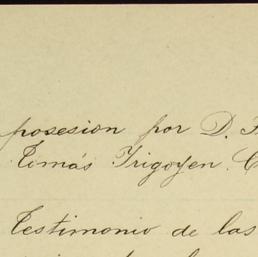 posesion por D.
Tomás Irigoyen.
Testimonio de las